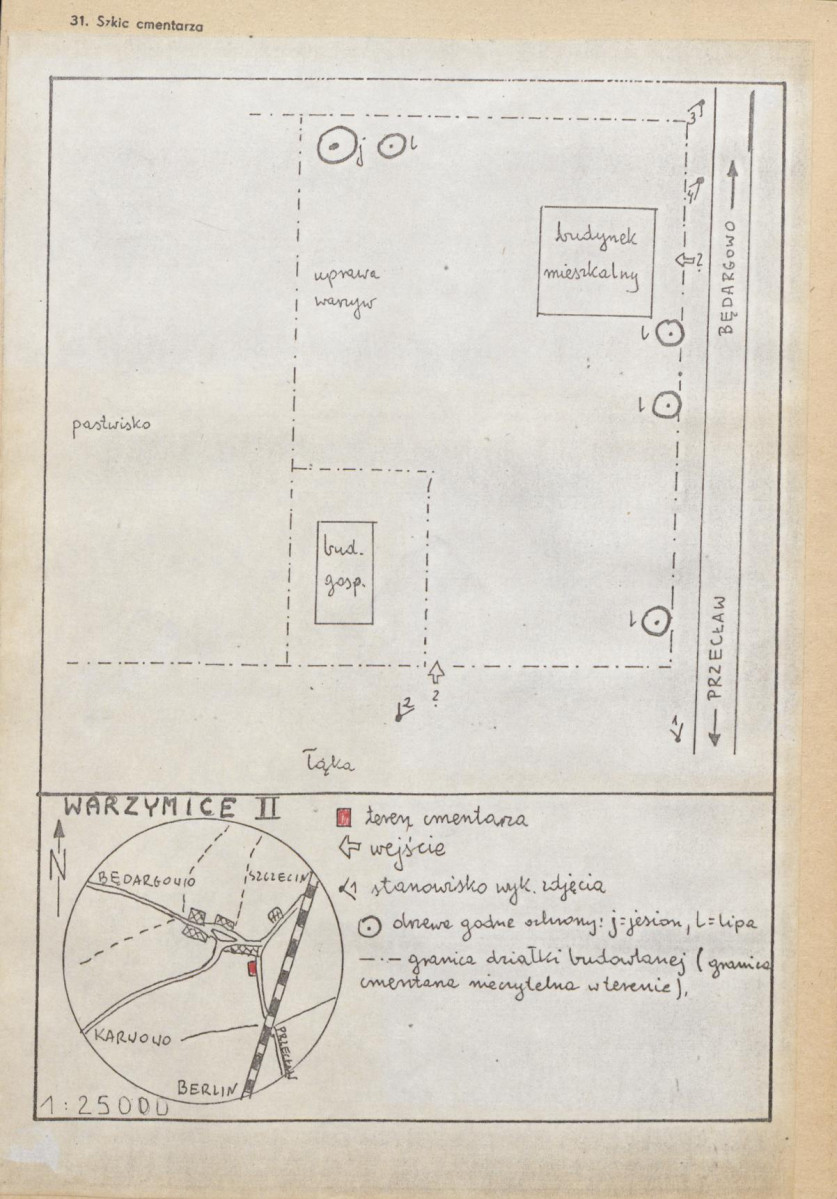 31. Szkic cmentarza
3
j l
4
BĘDARGOWO
budynek
mieszkalny
?
uprawa
warzyw
l
l
pastwisko
bud.
gosp.
l
PRZECŁAW
?
2
1
Łąka
WARZYMICE II
N
BĘDARGOWO
SZCZECIN
KARWOWO
PRZECŁAW
BERLIN
1:25000
teren cmentarza
wejście
1 stanowisko wyk. zdjęcia
drzewa godne ochrony: j=jesion, l=lipa
granica działki budowlanej (granica
cmentarza nieczytelna w terenie).